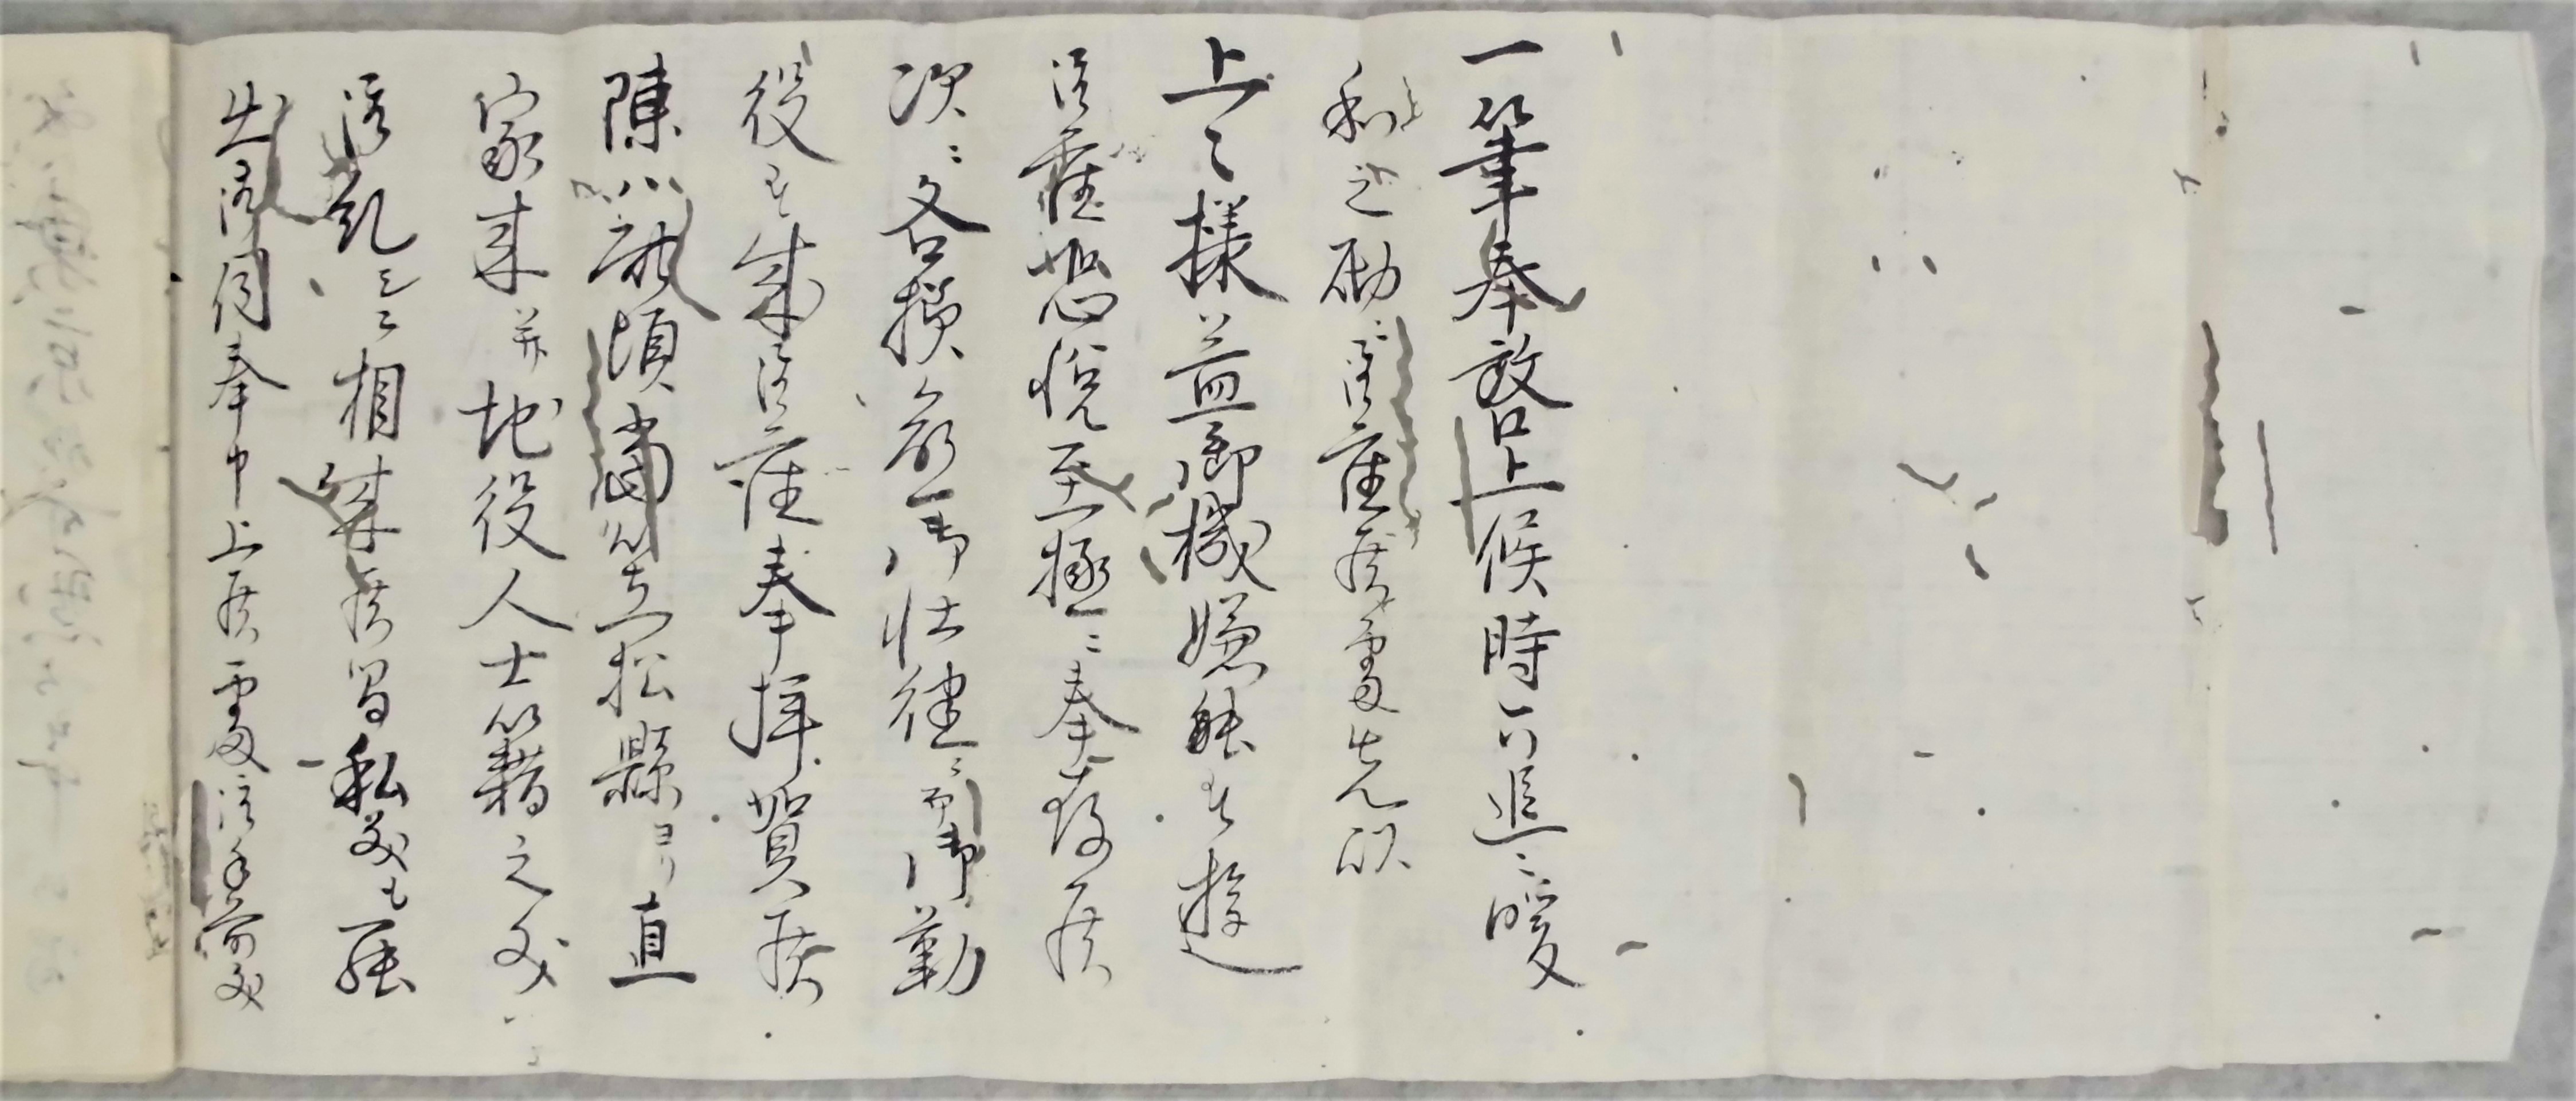 一筆奉啓上候時下追々暖
和之砌ニ御座候處先以
上々様益御機嫌能被遊
御座恐悦至極ニ奉存候
次ニ各様愈御壮健ニ而御勤
役被成御座奉拝賀候
陳ハ龍頃当笠松縣ヨリ直
家来并地役人士籍之義
御乱シニ相成候ニ付私義も罷
出御伺奉申上候處御手前義